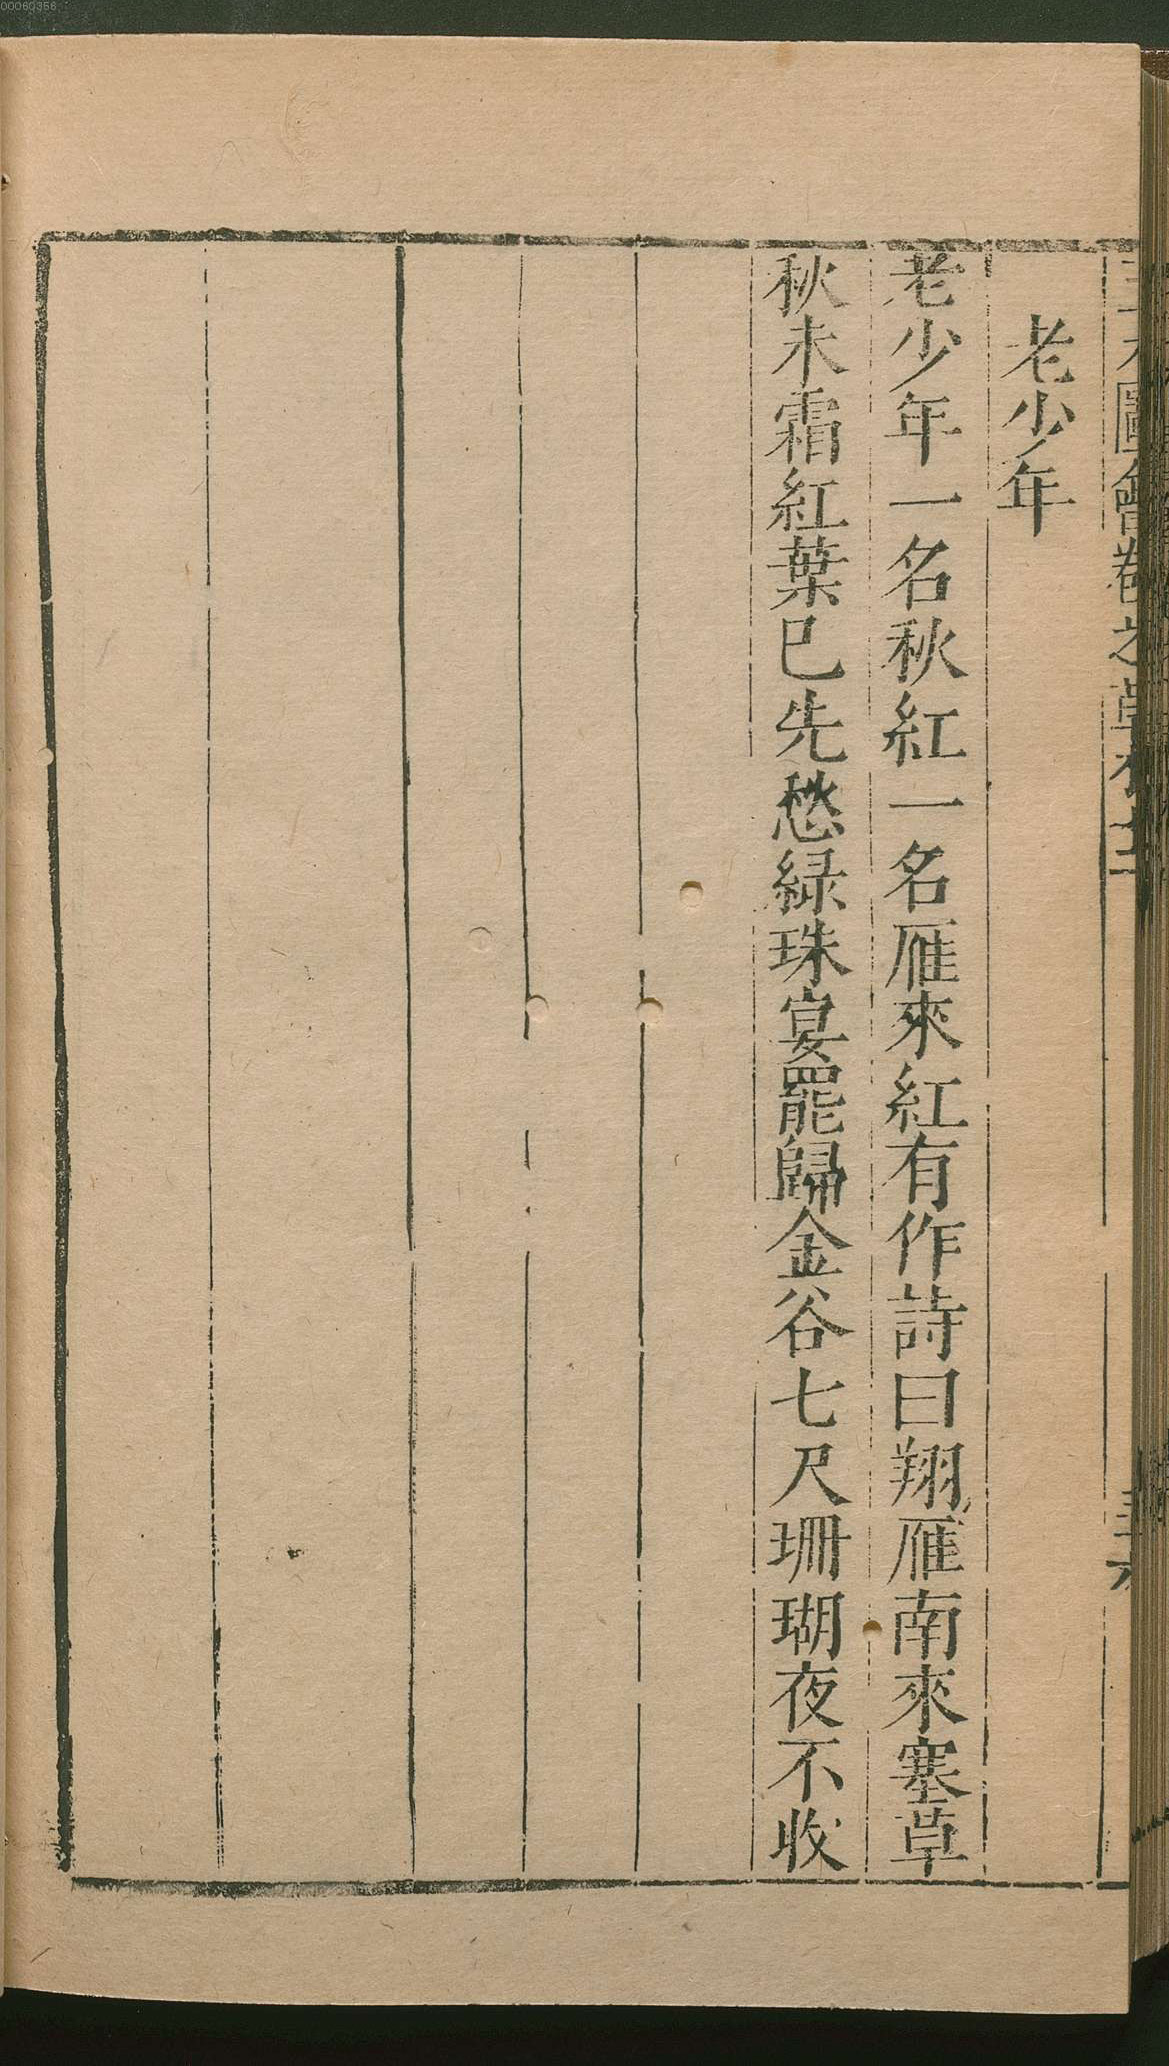 00060356
三才圖會卷之草木十二
老少年
老少年一名秋紅一名雁來紅有作詩曰翔雁南來塞草
秋未霜紅葉已先愁綠珠宴罷歸金谷七尺珊瑚夜不收